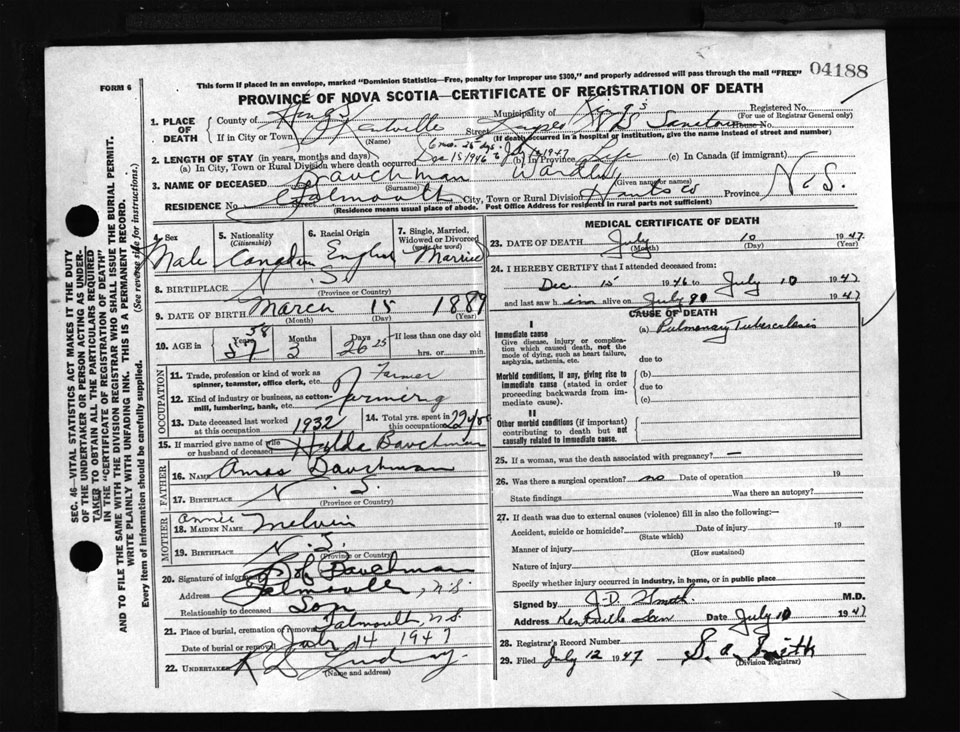 FORM 6
This form if placed in an envelope, marked "Dominion Statistics—Free, penalty for improper use $300," and properly addressed will pass through the mail "FREE"
04188
PROVINCE OF NOVA SCOTIA—CERTIFICATE OF REGISTRATION OF DEATH
1. PLACE OF DEATH
County of Kings
Municipality of Kings
Registered No.
(For use of Registrar General only)
If in City or Town Kentville
(Name)
Street
House No.
(If death occurred in a hospital or institution, give the name instead of street and number)
6 mos. 25 dys.
2. LENGTH OF STAY (in years, months and days)
Dec 15/1946 to July 10/1947
(a) In City, Town or Rural Division where death occurred
(b) In Province Life
(c) In Canada (if immigrant)
3. NAME OF DECEASED Bauchman
(Surname)
(Given name or names)
RESIDENCE No. Street Falmouth City, Town or Rural Division Hants Co Province N.S.
(Residence means usual place of abode. Post Office Address for residents in rural parts not sufficient)
4. Sex Male
5. Nationality (Citizenship) Canadian
6. Racial Origin English
7. Single, Married, Widowed or Divorced (write the word) Married
8. BIRTHPLACE N. S.
(Province or Country)
9. DATE OF BIRTH March 15 1889
(Month) (Day) (Year)
10. AGE in Years 58 57 Months 3 Days 26 25 If less than one day old hrs. or min.
OCCUPATION
11. Trade, profession or kind of work as spinner, teamster, office clerk, etc. Farmer
12. Kind of industry or business, as cotton-mill, lumbering, bank, etc. Farming
13. Date deceased last worked at this occupation 1932
14. Total yrs. spent in this occupation 22 yrs
15. If married give name of wife or husband of deceased Hylda Bauchman
FATHER
16. NAME Amos Bauchman
17. BIRTHPLACE N. S.
(Province or Country)
MOTHER
18. MAIDEN NAME Annie Melvin
19. BIRTHPLACE N. S.
(Province or Country)
20. Signature of informant Bauchman
Address Falmouth, N.S.
Relationship to deceased Son
21. Place of burial, cremation or removal Falmouth, N.S.
Date of burial or removal July 14 1947
22. UNDERTAKER
(Name and address)
MEDICAL CERTIFICATE OF DEATH
23. DATE OF DEATH July 10 1947
(Month) (Day) (Year)
24. I HEREBY CERTIFY that I attended deceased from:
Dec 15 1946 to July 10 1947
and last saw him alive on July 1947
CAUSE OF DEATH
I
Immediate cause
Give disease, injury or complication which caused death, not the mode of dying, such as heart failure, asphyxia, asthenia, etc.
(a) Pulmonary Tuberculosis
due to
Morbid conditions, if any, giving rise to immediate cause (stated in order proceeding backwards from immediate cause).
(b)
due to
(c)
II
Other morbid conditions (if important) contributing to death but not causally related to immediate cause.
25. If a woman, was the death associated with pregnancy? —
26. Was there a surgical operation? no Date of operation 19
State findings Was there an autopsy?
27. If death was due to external causes (violence) fill in also the following:—
Accident, suicide or homicide? Date of injury 19
(State which)
Manner of injury
(How sustained)
Nature of injury
Specify whether injury occurred in industry, in home, or in public place
Signed by J. D. M.D.
Address Kentville San Date July 10 1947
28. Registrar's Record Number
29. Filed July 12 1947 S. A. Smith
(Division Registrar)
SEC. 46—VITAL STATISTICS ACT MAKES IT THE DUTY
OF THE UNDERTAKER OR PERSON ACTING AS UNDER-
TAKER TO OBTAIN ALL THE PARTICULARS REQUIRED
IN THE "CERTIFICATE OF REGISTRATION OF DEATH"
AND TO FILE THE SAME WITH THE DIVISION REGISTRAR WHO SHALL ISSUE THE BURIAL PERMIT.
WRITE PLAINLY WITH UNFADING INK. THIS IS A PERMANENT RECORD.
Every item of Information should be carefully supplied. (See reverse side for instructions.)